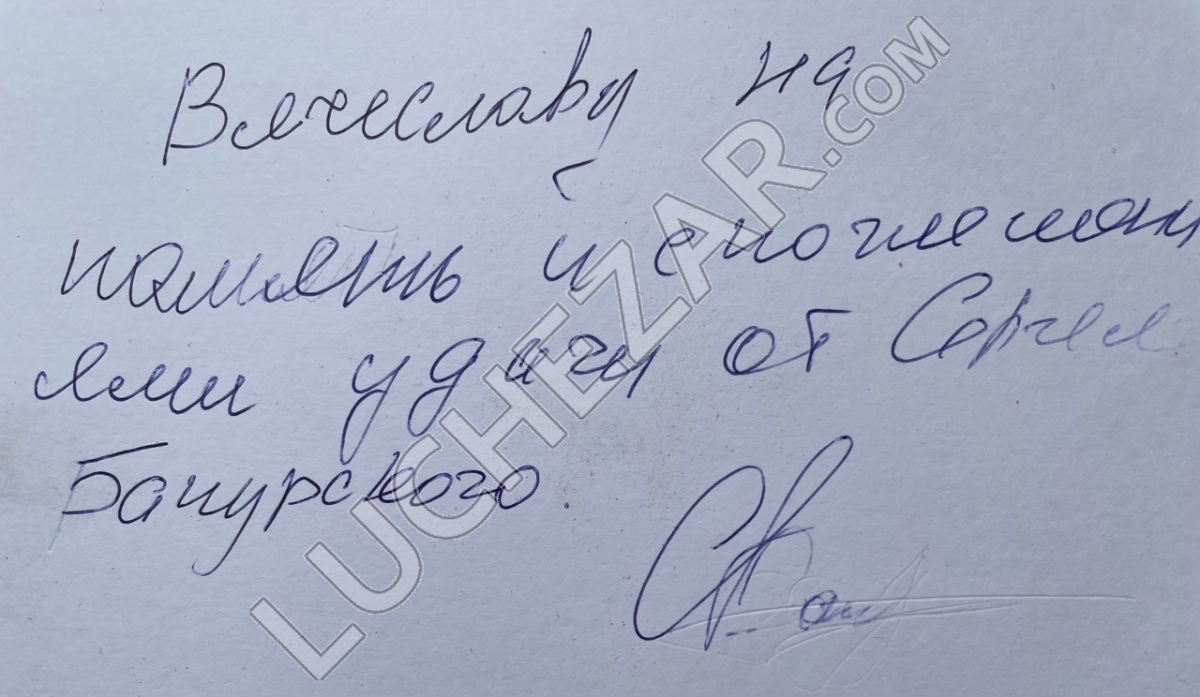 Вячеславу на
память и с пожелани
ями удачи от Сергея
Бачурского.
LUCHEZAR.COM